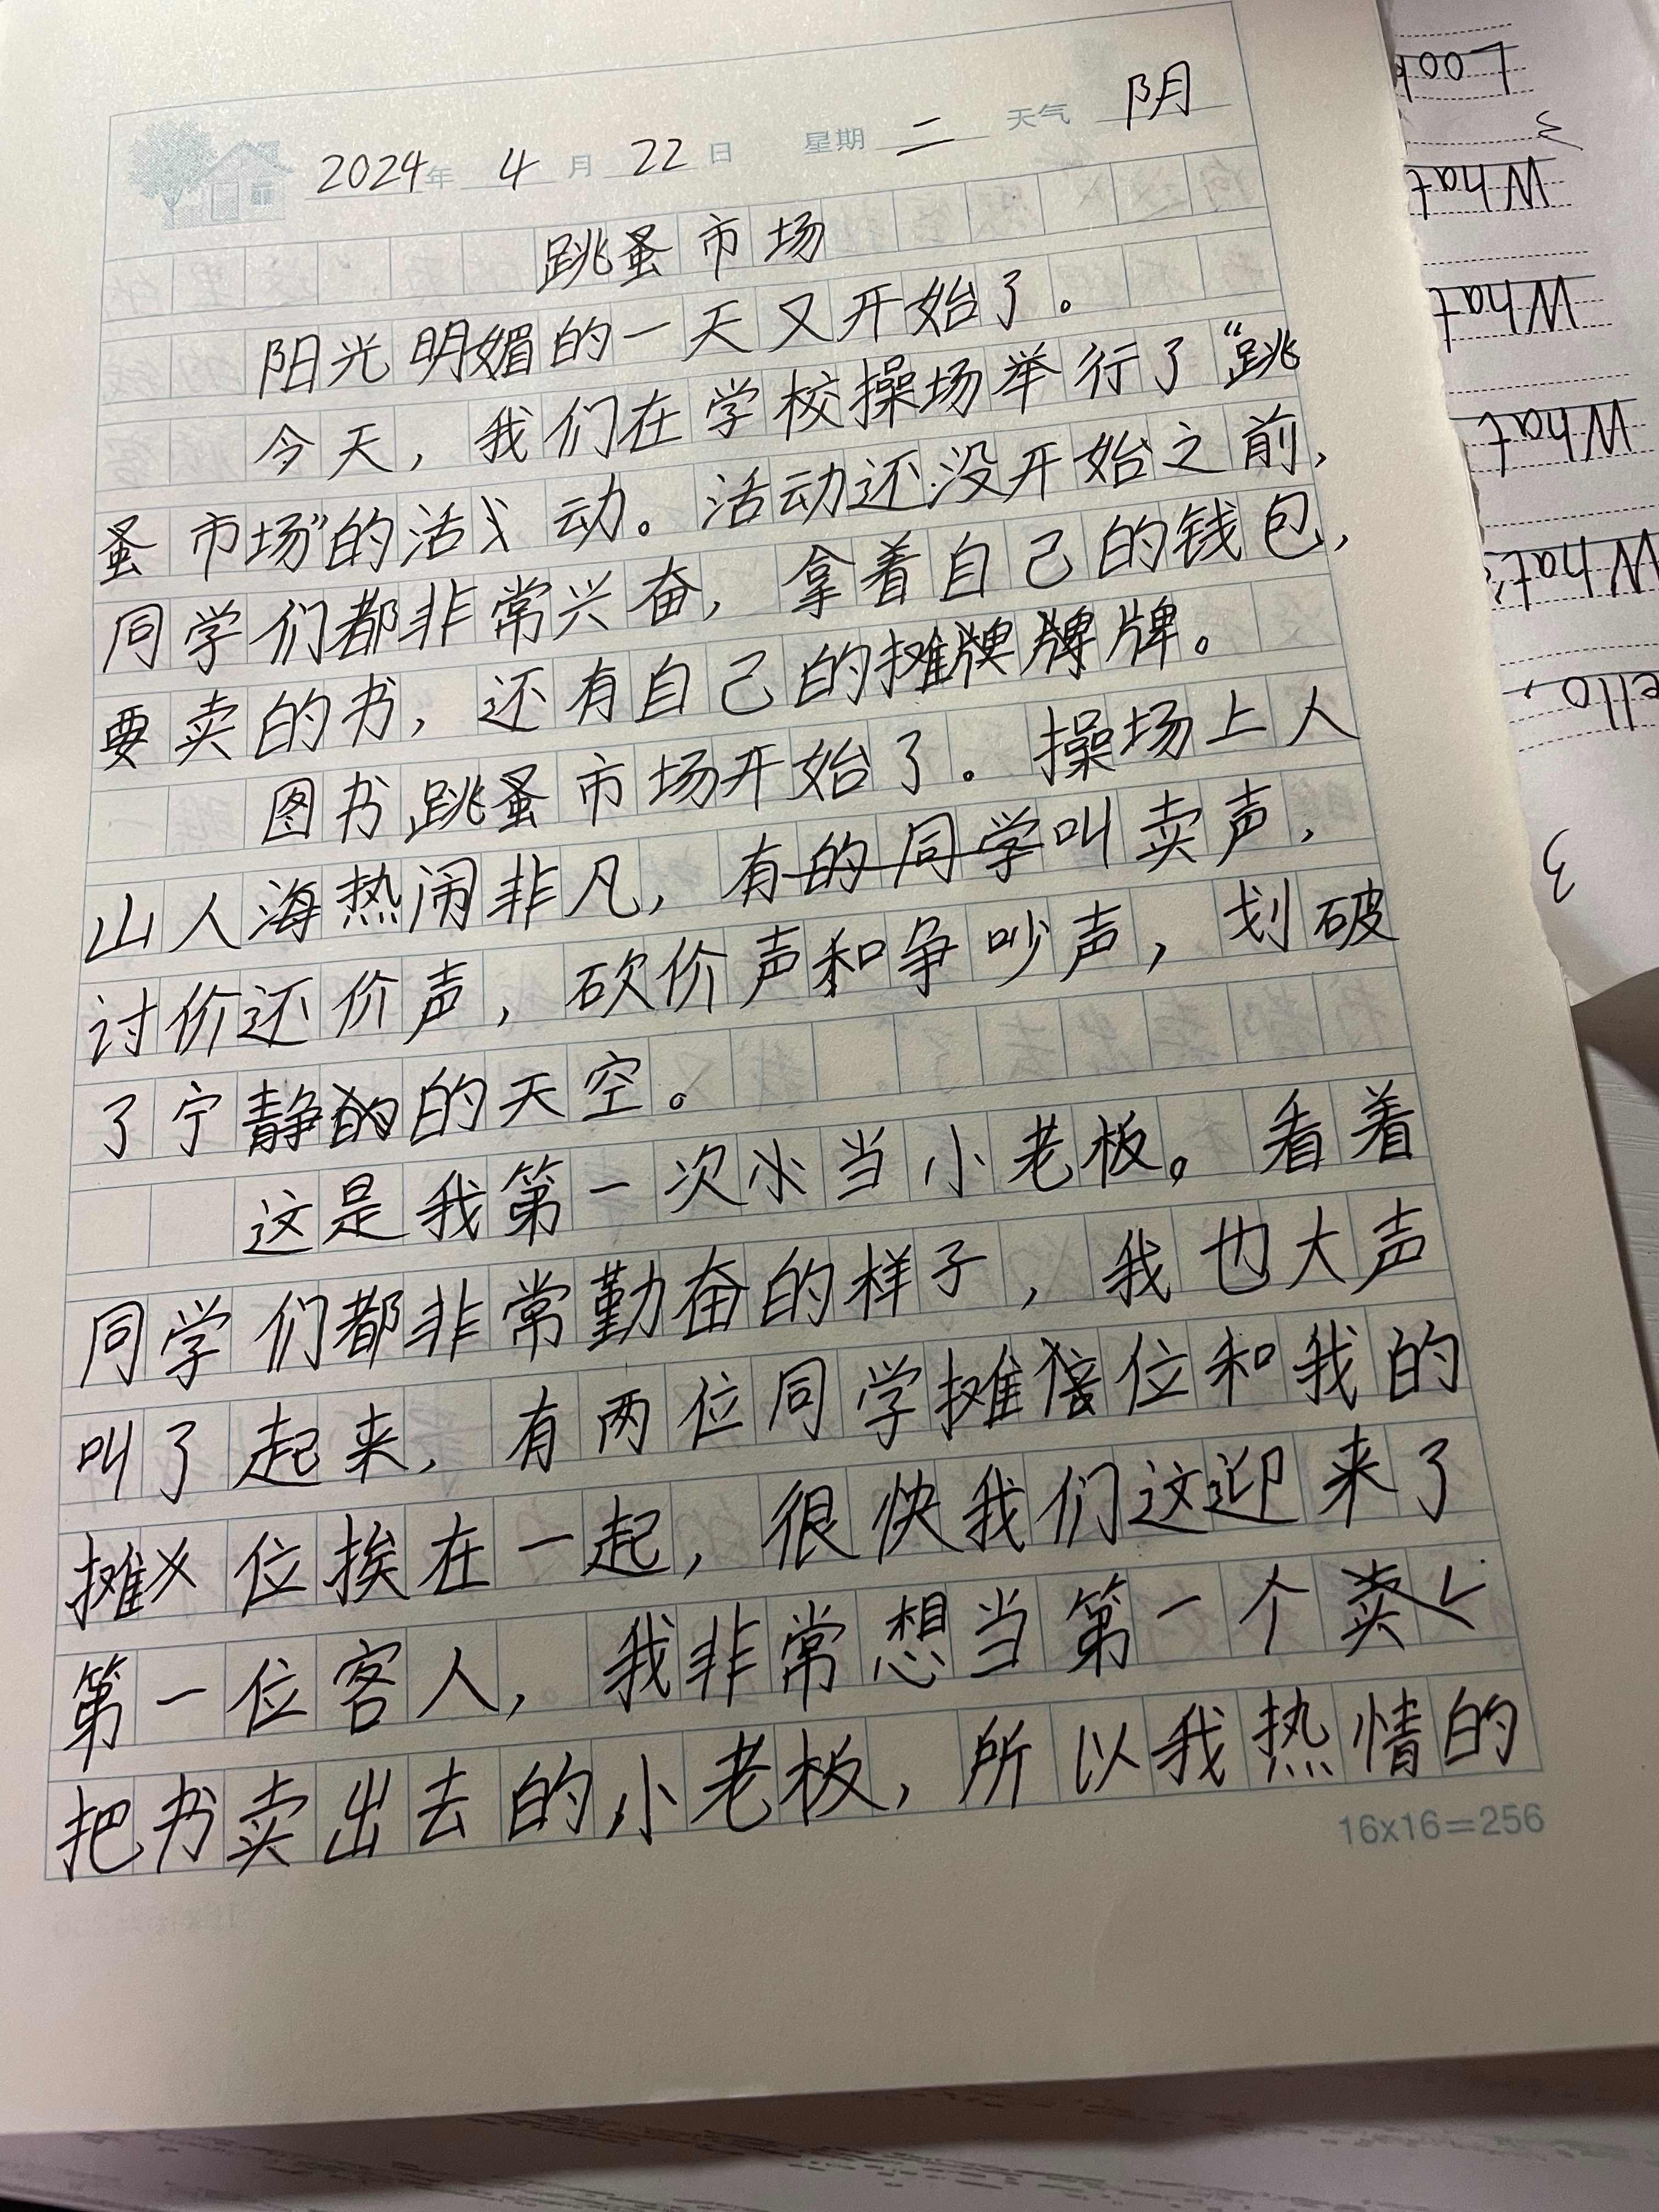 2024年 4月 22日 星期 二 天气 阴
跳蚤市场
阳光明媚的一天又开始了。
今天，我们在学校操场举行了“跳
蚤市场”的活动。活动还没开始之前，
同学们都非常兴奋，拿着自己的钱包，
要卖的书，还有自己的摊牌牌。
图书跳蚤市场开始了。操场上人
山人海热闹非凡，有的同学叫卖声，
讨价还价声，砍价声和争吵声，划破
了宁静的天空。
这是我第一次当小老板。看着
同学们都非常勤奋的样子，我也大声
叫了起来，有两位同学摊位和我的
摊位挨在一起，很快我们这迎来了
第一位客人，我非常想当第一个卖
把书卖出去的小老板，所以我热情的
16x16=256
Look
What
What
What
What's
ello,
3
3